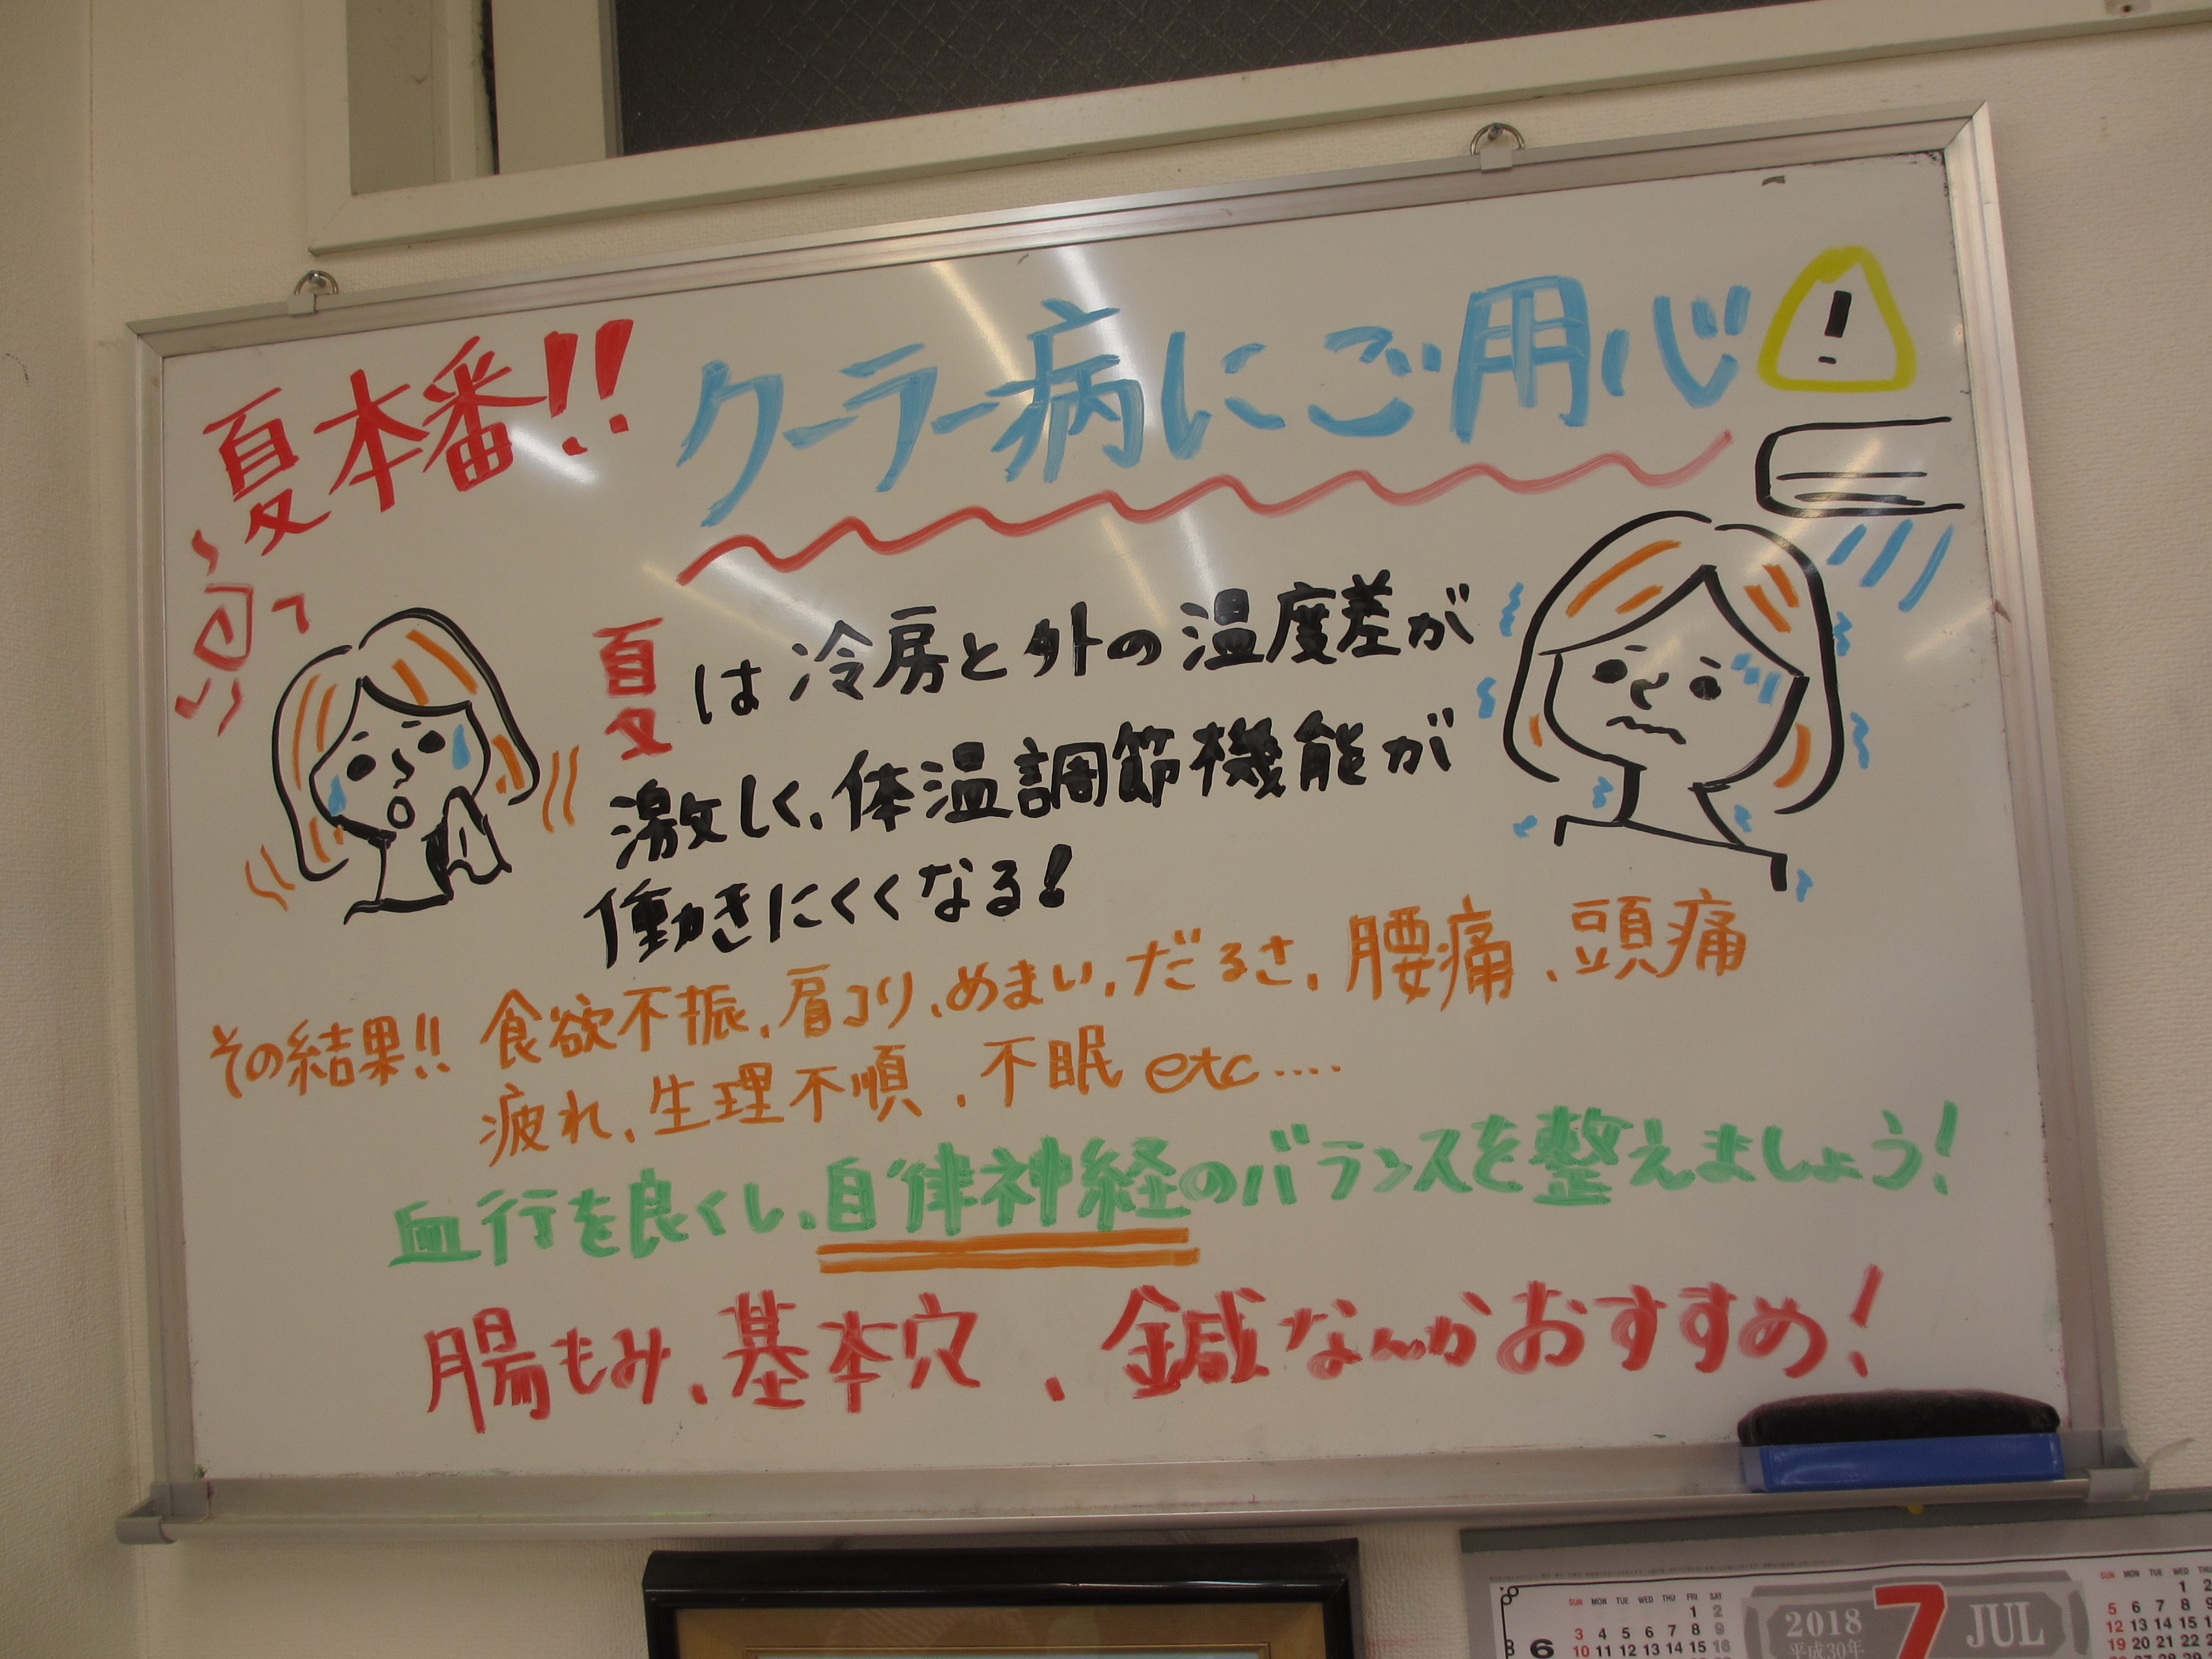 夏本番!! クーラー病にご用心
!
夏は冷房と外の温度差が
激しく、体温調節機能が
働きにくくなる!
その結果!! 食欲不振、肩コリ、めまい、だるさ、腰痛、頭痛
疲れ、生理不順、不眠 etc‥‥
血行を良くし、自律神経のバランスを整えましょう!
腸もみ、基本穴、鍼なんかおすすめ!
SUN MON TUE WED THU FRI SAT
1 2
6
3 4 5 6 7 8 9
10 11 12 13 14 15 16
2018
平成30年
7
JUL
SUN MON TUE WED
1
5 6 7 8
12 13 14 15
19 20 21 22